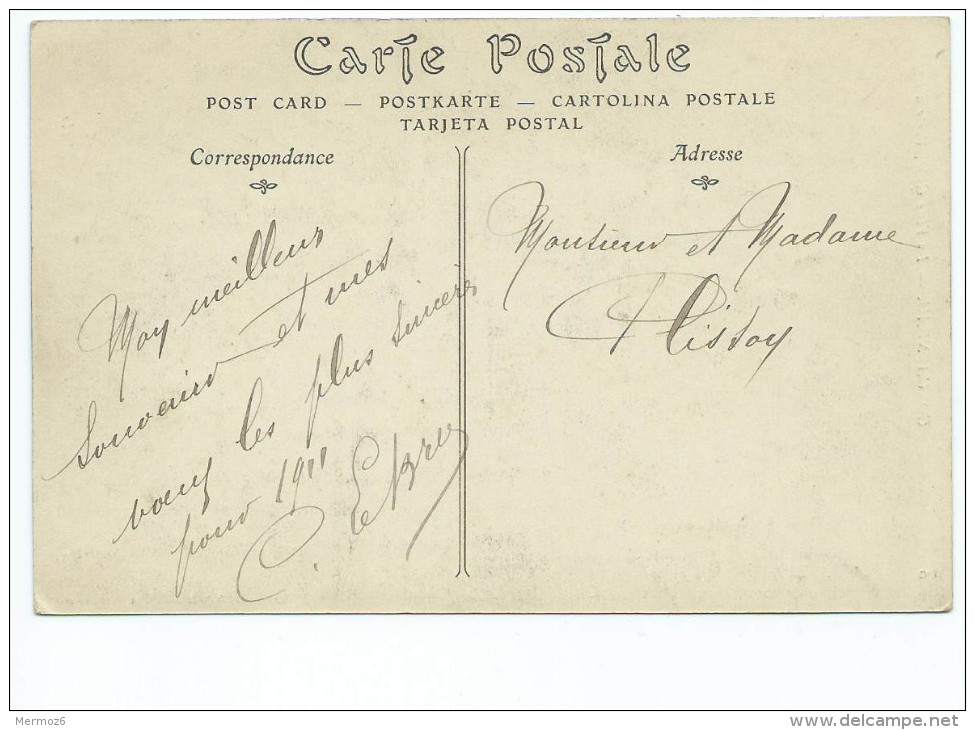 Carte Postale
POST CARD — POSTKARTE — CARTOLINA POSTALE
TARJETA POSTAL
Correspondance
Moy meilleur
Souvenir et mes
voeux les plus sincères
pour 1911
C.
Adresse
Monsieur et Madame
Plissoy
Mermoz6
www.delcampe.net